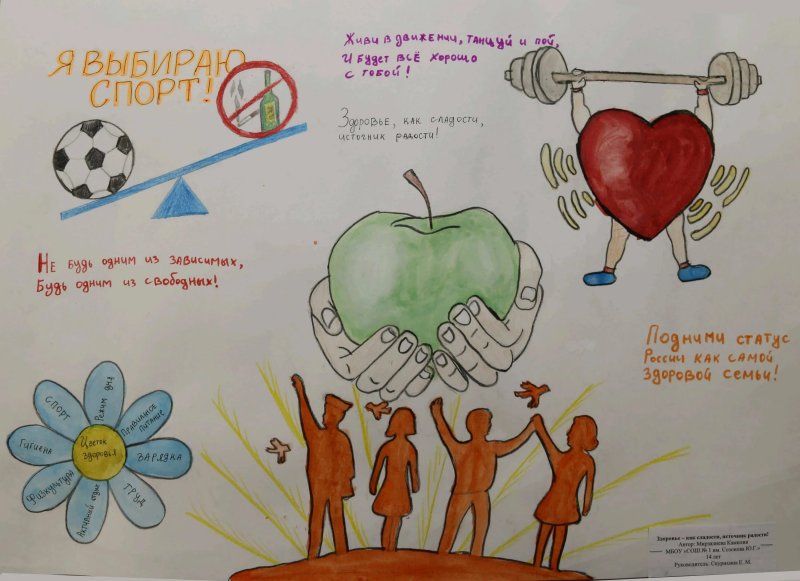 Я ВЫБИРАЮ
СПОРТ!
Живи в движении, танцуй и пой,
И будет всё хорошо
с тобой!
Здоровье, как сладости,
источник радости!
Не будь одним из зависимых,
Будь одним из свободных!
Подними статус
России как самой
здоровой семьи!
Цветок
здоровья
Режим дня
Правильное
питание
ЗАРЯДКА
ТРУД
Активный отдых
Физкультура
Гигиена
СПОРТ
Здоровье – как сладости, источник радости!
Автор: Мирзалиева Камилла
МБОУ «СОШ № 1 им. Созонова Ю.Г.»
14 лет
Руководитель: Е. М.